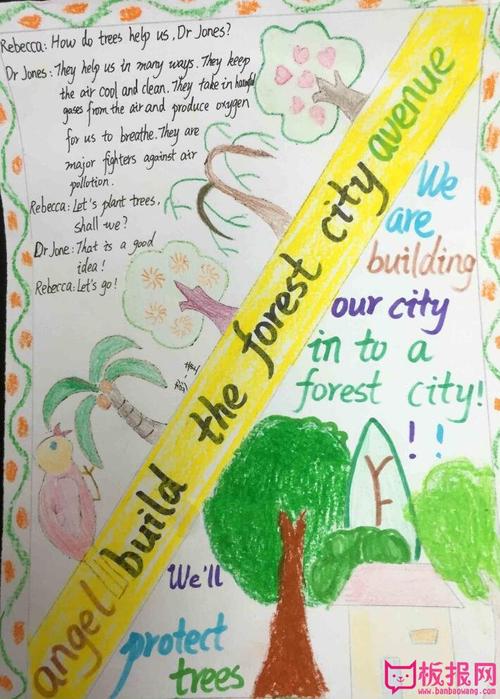 Rebecca: How do trees help us, Dr Jones?
Dr Jones: They help us in many ways. They keep
the air cool and clean. They take in harmful
gases from the air and produce oxygen
for us to breathe. They are
major fighters against air
pollotion.
Rebecca: Let's plant trees,
shall we?
Dr Jone: That is a good
idea!
Rebecca: Let's go!
angel build the forest city avenue
We
are
building
our city
in to a
forest city!
!!
We'll
protect
trees
板报网
www.banbaowang.com